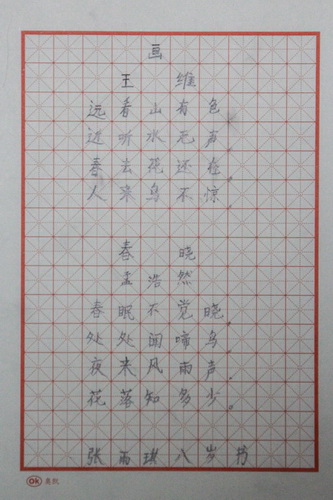 画
王维
远看山有色
近听水无声。
春去花还在
人来鸟不惊。
春晓
孟浩然
春眠不觉晓。
处处闻啼鸟
夜来风雨声。
花落知多少。
张雨琪八岁书
Ok 奥凯